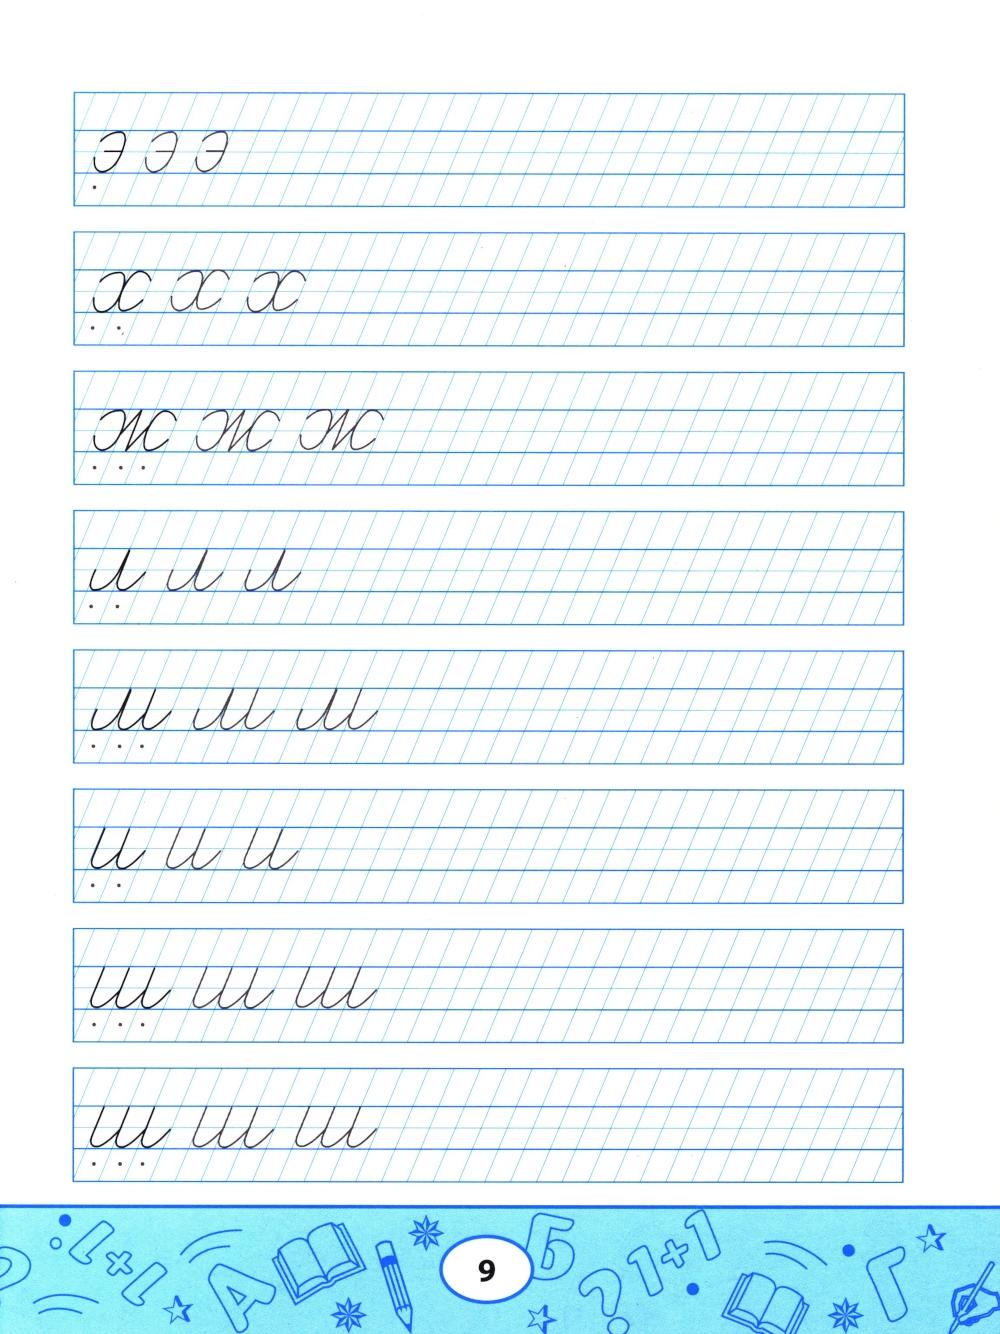 э э э
х х х
ж ж ж
л л л
м м м
и и и
ш ш ш
ш ш ш
1+1 А 9 Б ? 1+1 Г